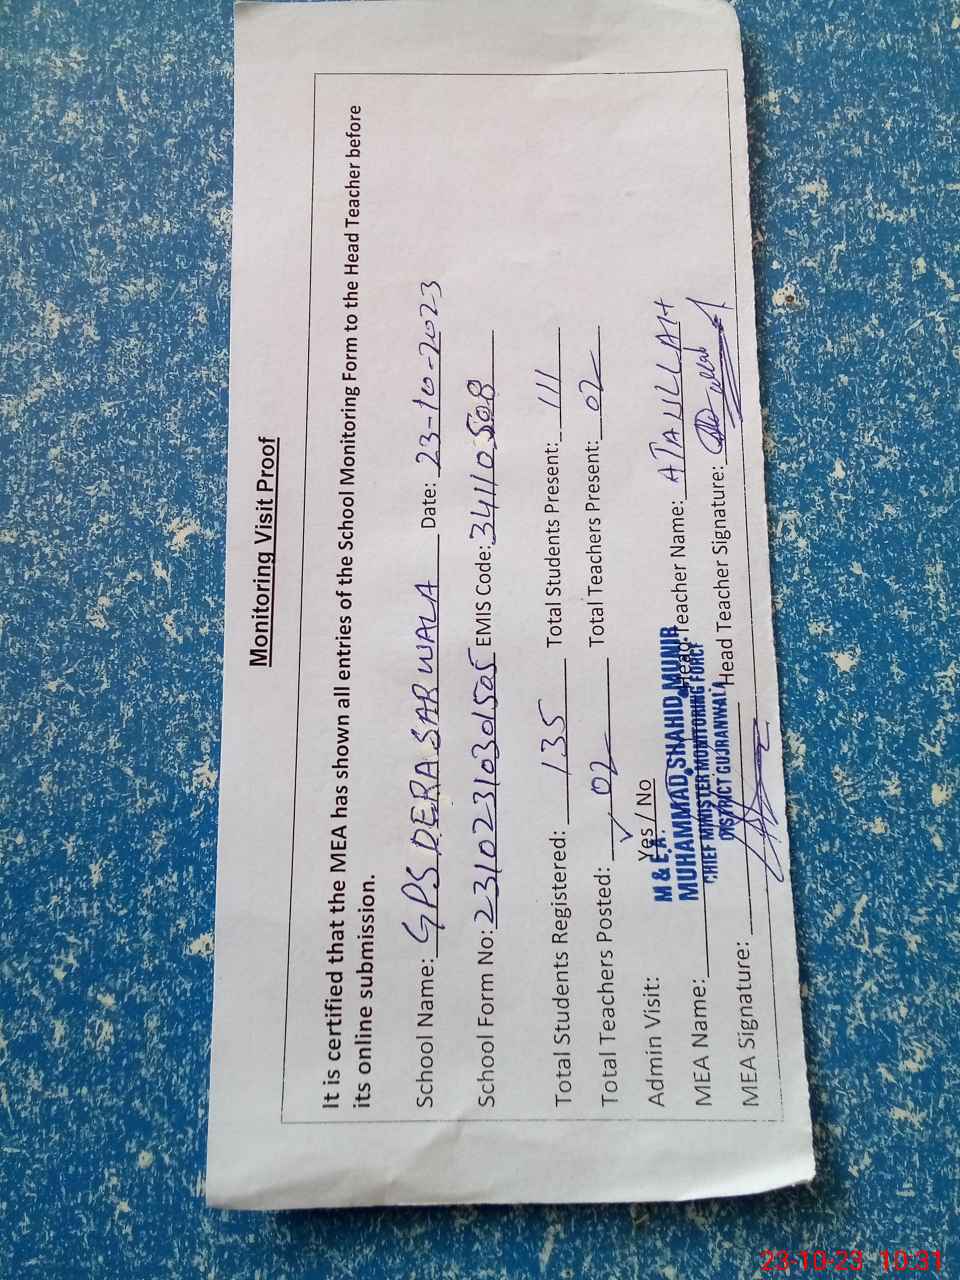 Monitoring Visit Proof
It is certified that the MEA has shown all entries of the School Monitoring Form to the Head Teacher before
its online submission.
School Name: GPS DERA SAR WALA Date: 23-10-2023
School Form No: 23102310301505 EMIS Code: 34110508
Total Students Registered: 135 Total Students Present: 111
Total Teachers Posted: 02 Total Teachers Present: 02
Admin Visit: Yes / No
M & E.A.
MEA Name: MUHAMMAD SHAHID MUNIR Head Teacher Name: ATAULLAH
CHIEF MINISTER MONITORING FORCE
DISTRICT GUJRANWALA
MEA Signature: Head Teacher Signature:
23-10-23 10:31